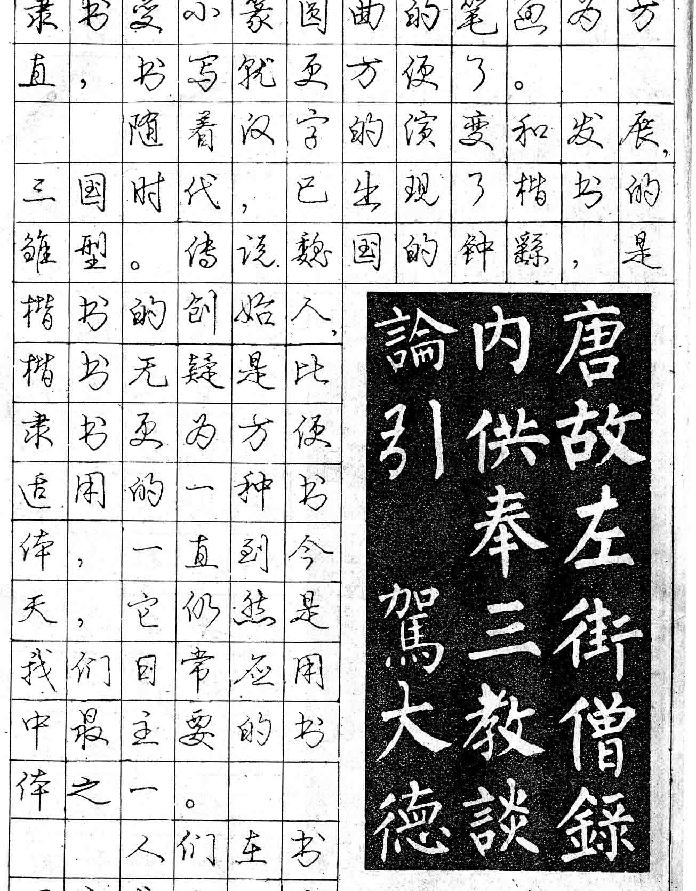 隶书变小篆圆曲的笔画为方
直，书写就更方便了。
随着汉字的演变和发展，
三国时代，已出现了楷书的
雏型。传说魏国的钟繇，是
楷书的创始人，
楷书无疑是比
隶书更为方便
适用的一种书
体，一直到今
天，它仍然是
我们日常应用
中最主要的书
体之一。
人们在书
唐故左街僧錄
内供奉三教談
論引 駕大德